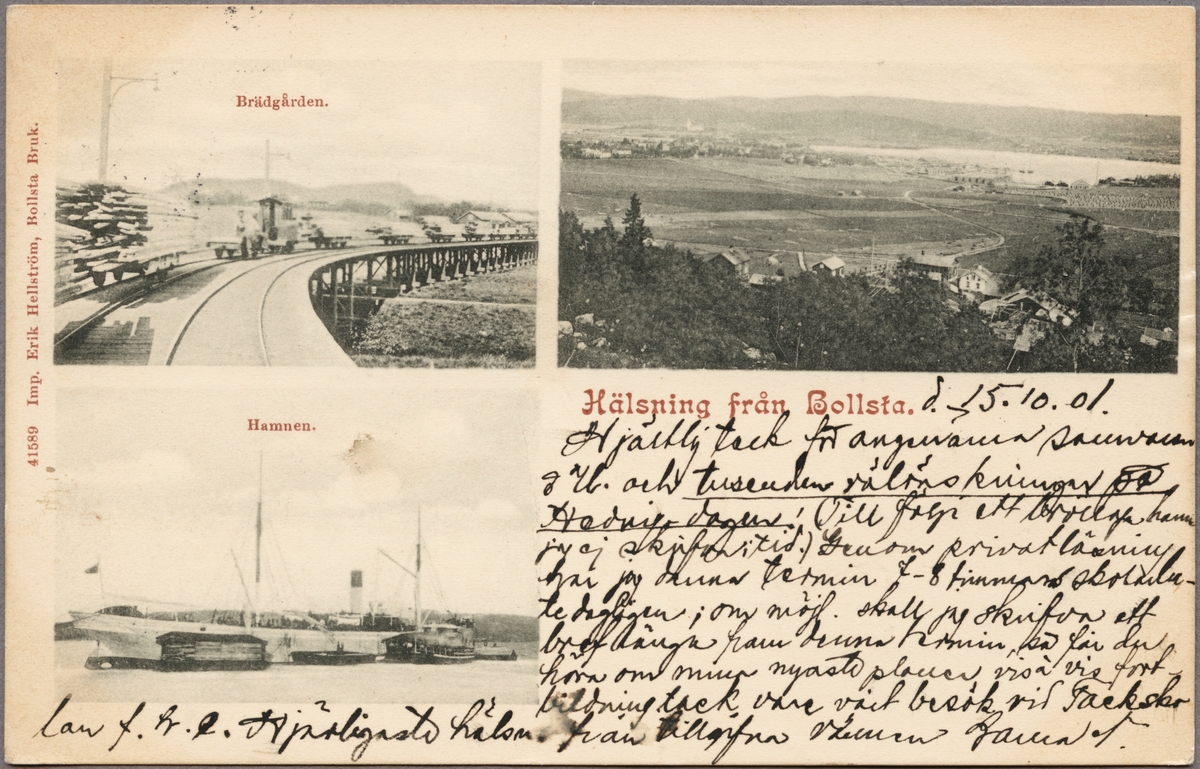 Brädgården.
41589 Imp. Erik Hellström, Bollsta Bruk.
Hamnen.
Hälsning från Bollsta.
d. 15.10.01.
Hjärtlig tack för angenäma samvaron
och tusenden välönskningar på
Hedvigs-dagen! (Till följe ett bröllop hann
jag ej skrifva i tid.) Genom privatläsning
har jag denna termin 7-8 timmars skolarbe-
te dagligen; om möjl. skall jag skrifva ett
bref längre fram denna termin, så får du
höra om mina nyaste planer visà vis fort-
bildning tack vare vårt besök vid Tacksko
lan f. Hjärtligaste hälsn.
från tillgifna vännen